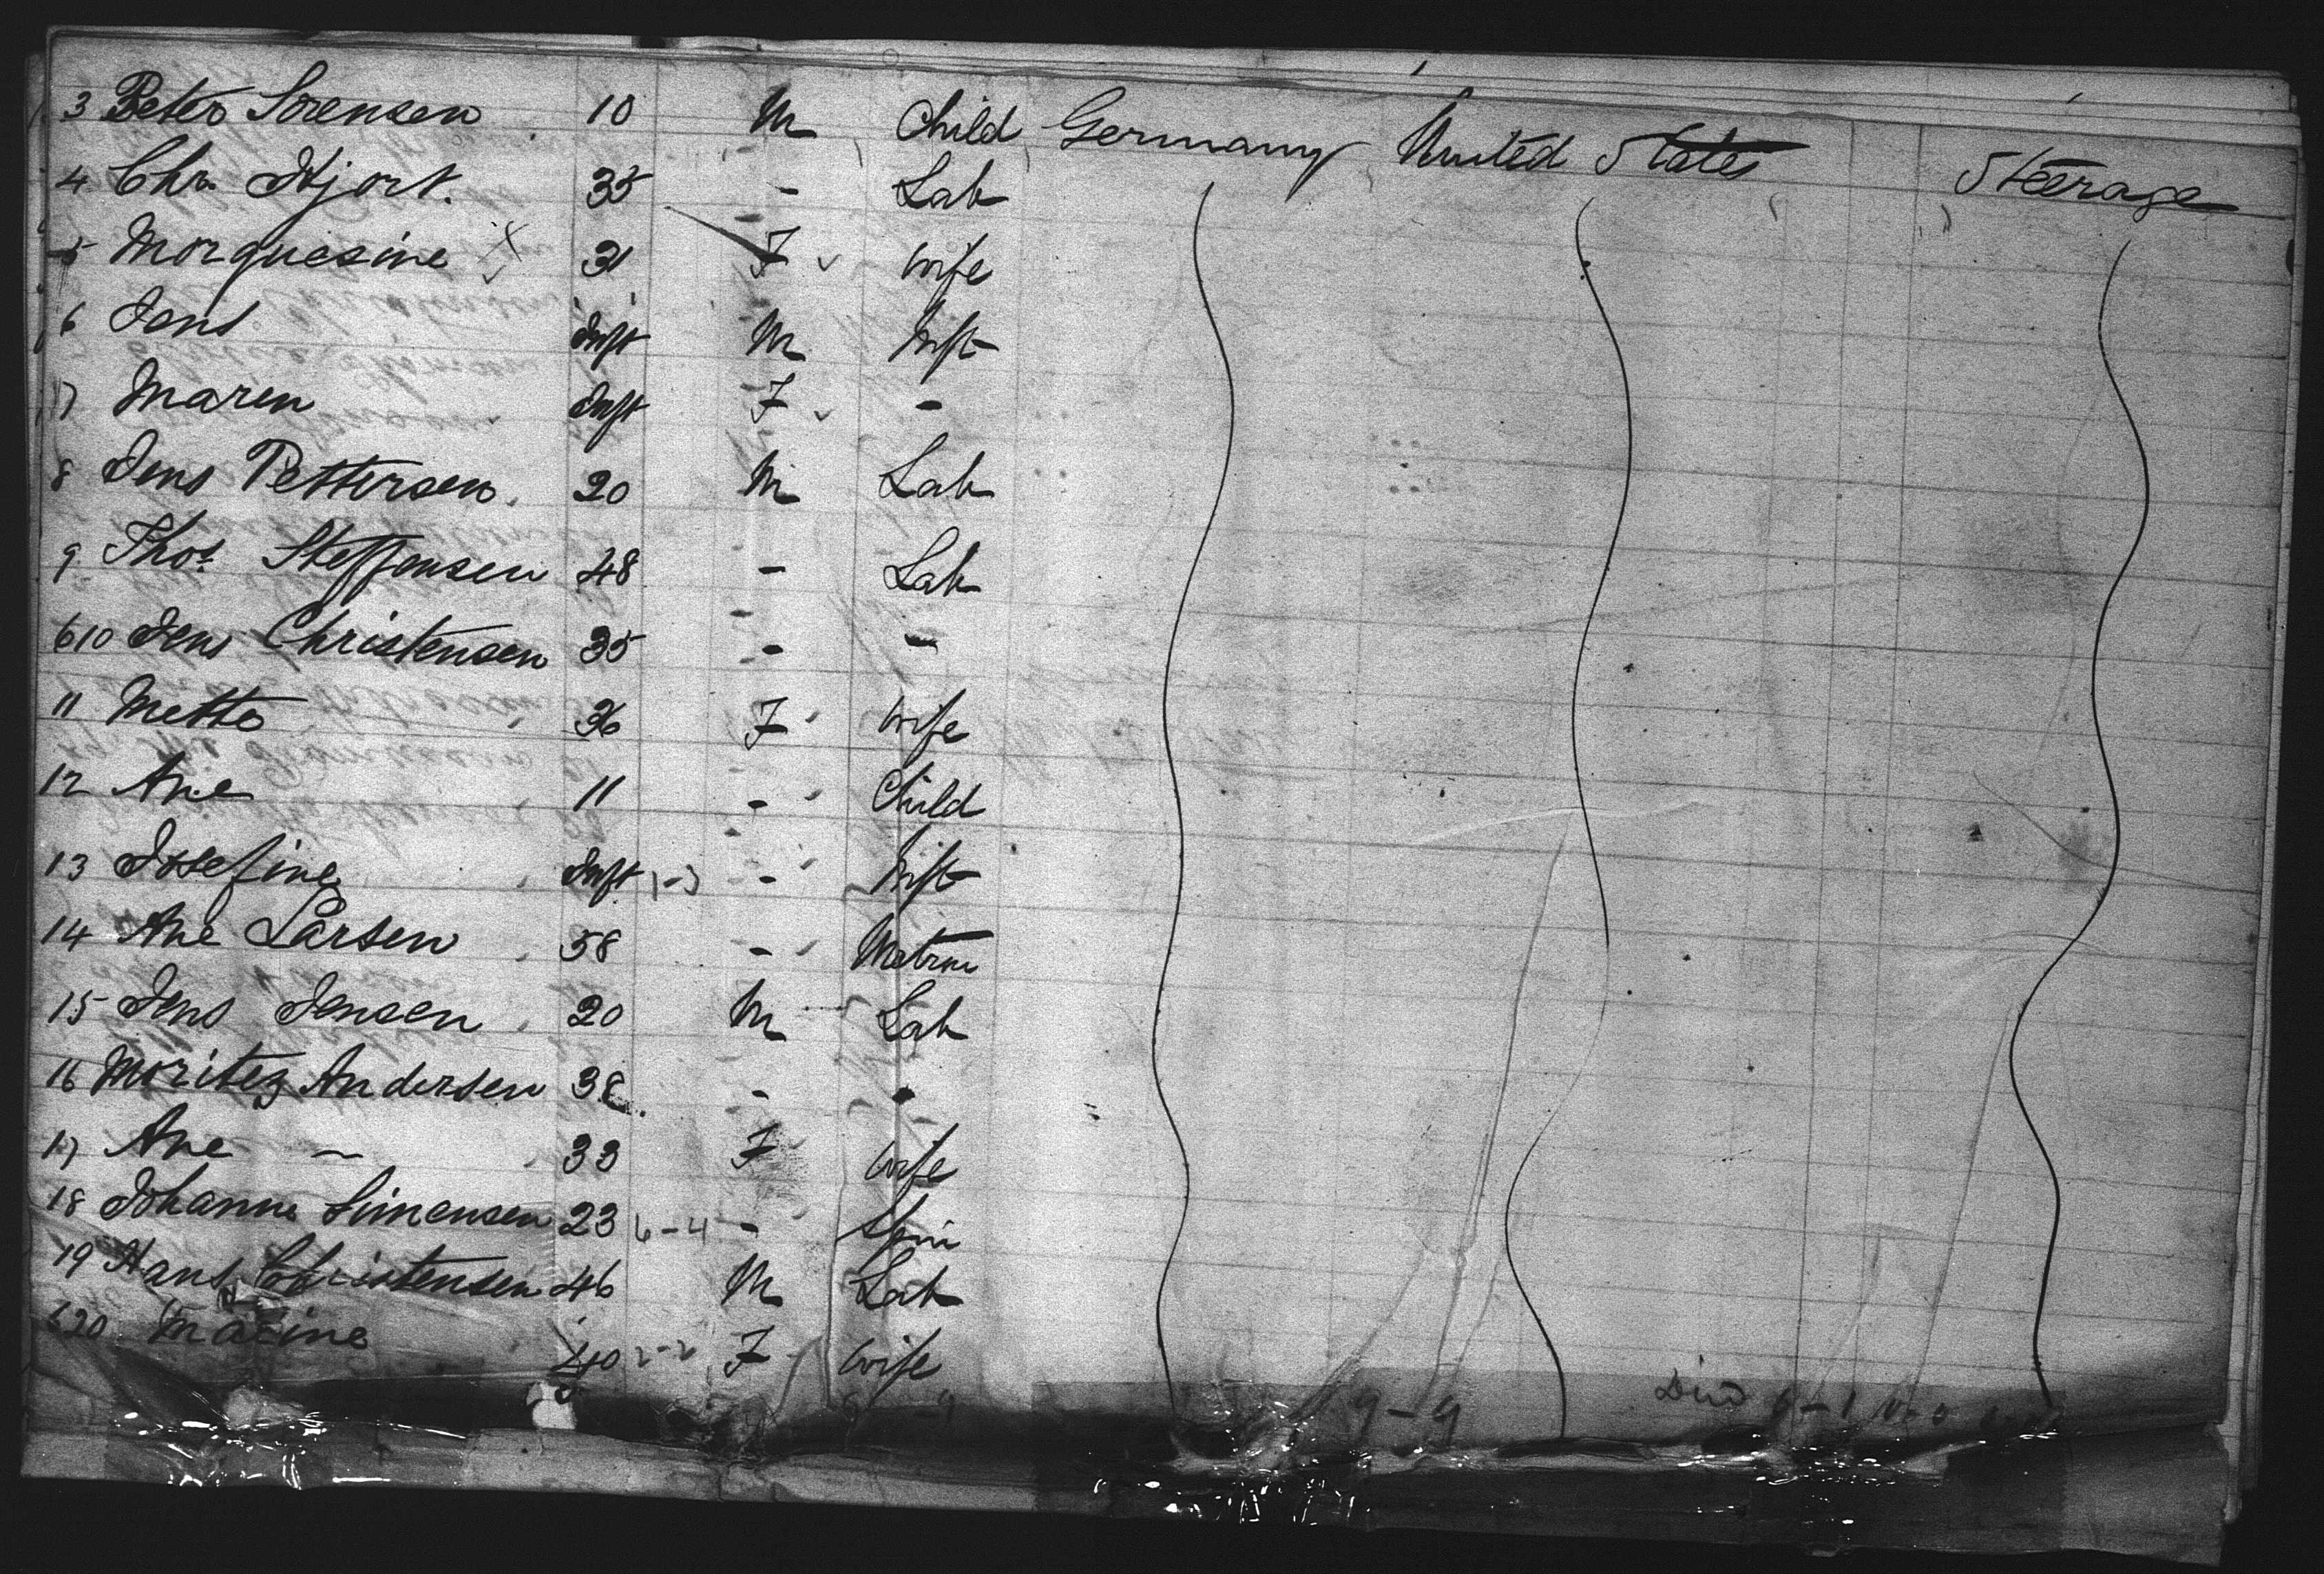 3 Peter Sorensen 10 M Child Germany United States Steerage
4 Chr. Hjort. 35 - Lab
5 Morguesine 31 F wife
6 Jens Inft M Inft
7 Maren Inft F -
8 Jens Pettersen 20 M Lab
9 Thos. Steffensen 48 - Lab
610 Jens Christensen 35 - -
11 Mette 36 F wife
12 Ane 11 - Child
13 Josefine Inft 1-3 - Inft
14 Ane Larsen 58 - Matron
15 Jens Jensen 20 M Lab
16 Moritez Andersen 38 - -
17 Ane - 33 F wife
18 Johanne Simensen 23 6-4 - Spin
19 Hans Christensen 46 M Lab
620 Marine 40 2-2 F wife
9-9 6-1